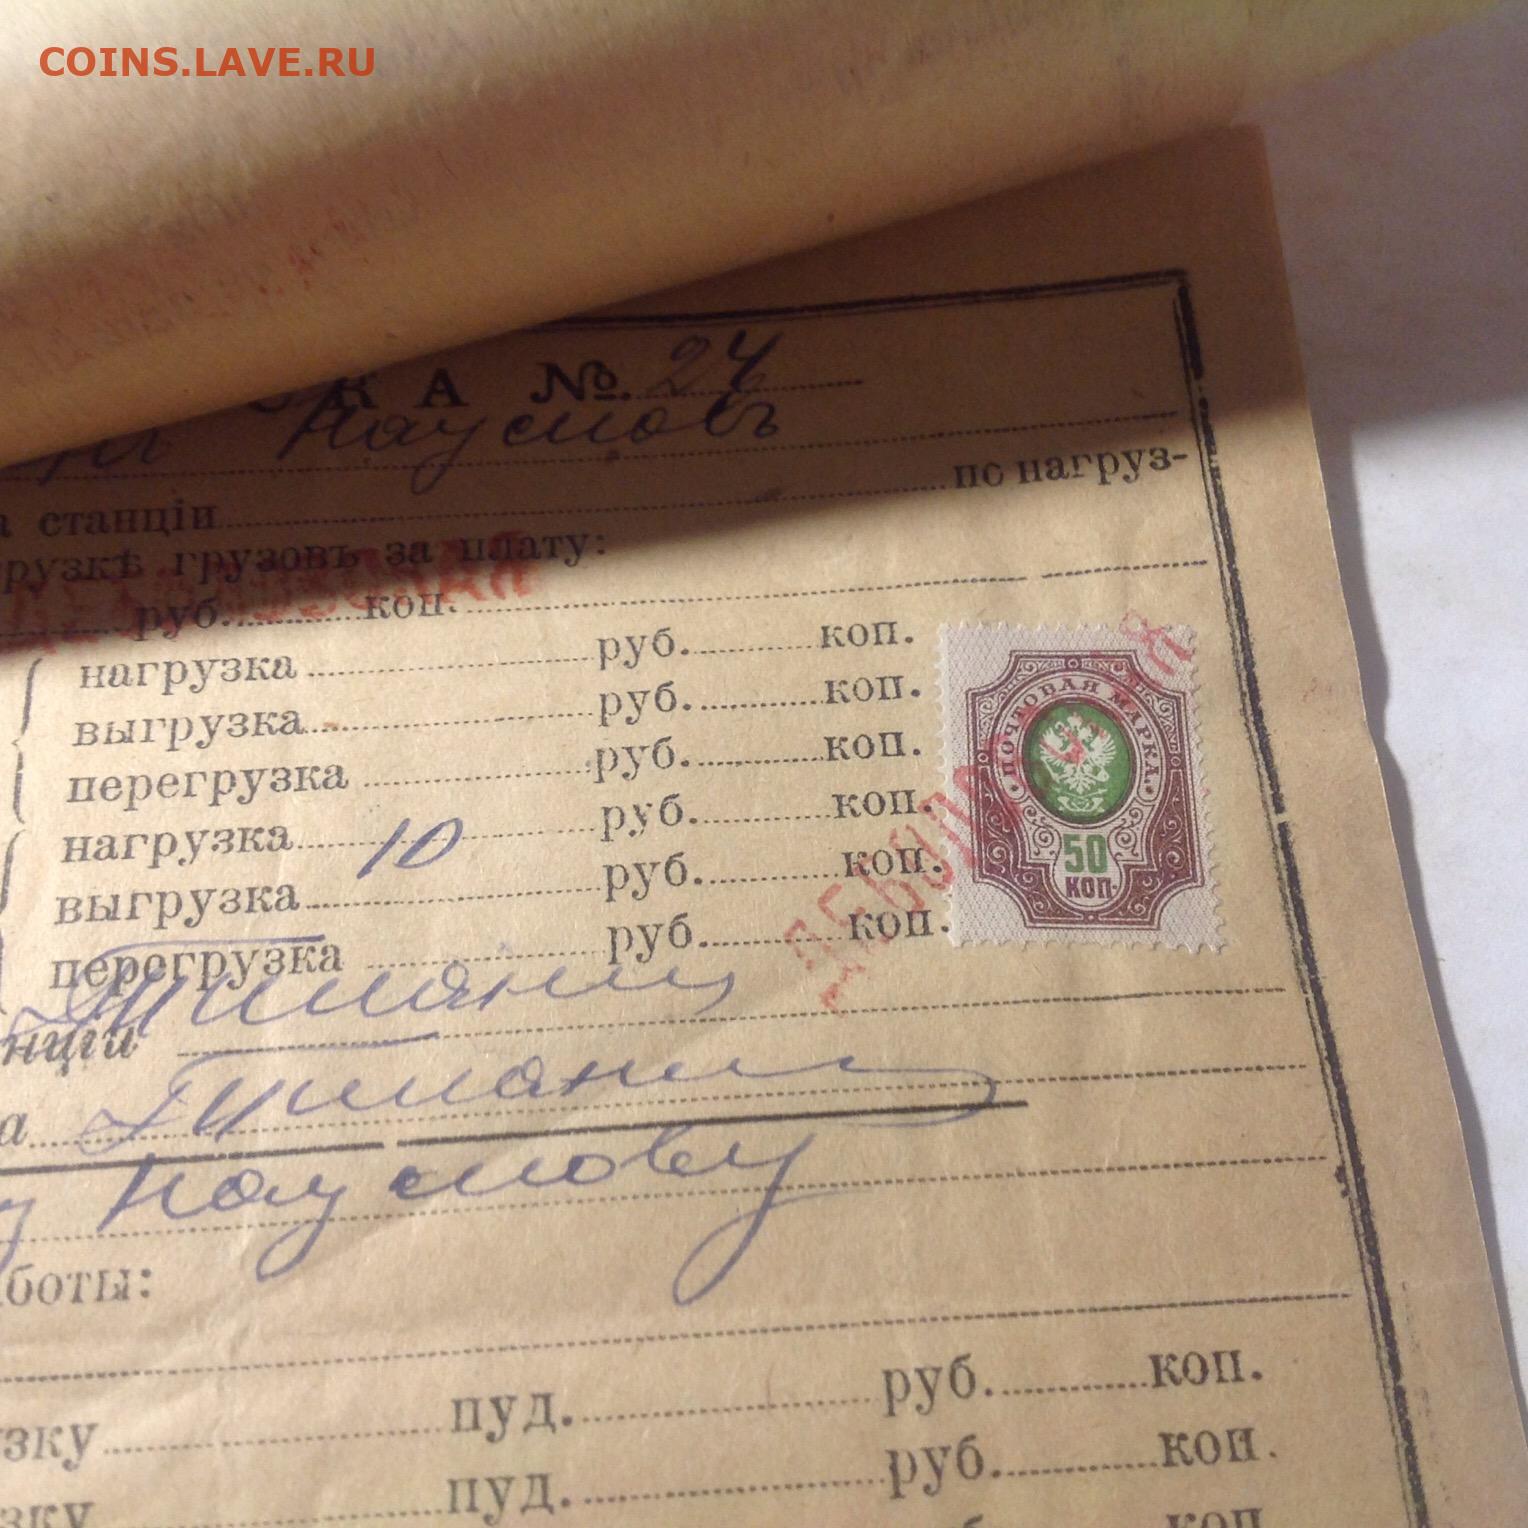 COINS.LAVE.RU
КА №. 24
Наумовъ
а станціи по нагруз-
рузкѣ грузовъ за плату:
руб. коп.
нагрузка руб. коп.
выгрузка руб. коп.
перегрузка руб. коп.
нагрузка 10 руб. коп.
выгрузка руб. коп.
перегрузка руб. коп.
ПОЧТОВАЯ МАРКА
50
КОП.
нціи
а
Наумову
боты:
зку пуд. руб. коп.
зку пуд. руб. коп.
коп